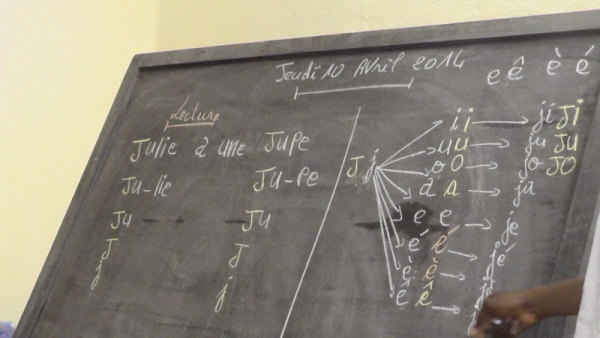 Jeudi 10 Avril 2014
e ê è é
Lecture
Julie a une Jupe
Ju-lie Ju-pe
Ju Ju
J J
j j
J j
i i ji Ji
u u ju Ju
o o jo Jo
a a ja
e e je
é é jé
è è
ê ê